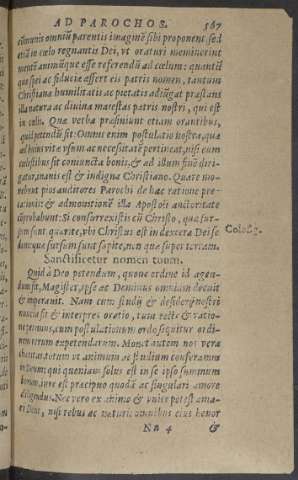 AD PAROCHOS. 567
cõmunis omniũ parentis imaginẽ sibi proponent sed
etiã in cœlo regnantis Dei, vt oraturi meminerint
mentẽ animũque esse referendũ ad cœlum: quantũ
que spei ac fiduciæ affert eis patris nomen, tantum
Christiana humilitatis ac pietatis adiũgat præstans
illa natura ac diuina maiestas patris nostri, qui est
in cœlis. Quæ verba præfiniunt etiam orantibus,
quid petendũ sit: Omnis enim postulatio nostra, quæ
ad huius vitæ vsum ac necessitatẽ pertineat, nisi cum
cælestibus sit coniuncta bonis, & ad illum finẽ diri-
gatur, inanis est & indigna Christiano. Quare mo-
nebunt pios auditores Parochi de hac ratione pre-
cationis: & admonitionẽ illa Apostoli auctoritate
cõprobabunt: Si consurrexistis cũ Christo, quæ sur-
sum sunt quærite, vbi Christus est in dextera Dei se
dens: quæ sursum sunt sapite, non quæ super terram.
Coloss. 3.
Sanctificetur nomen tuum.
Quid à Deo petendum, quoue ordine id agen-
dum sit, Magister, ipse ac Dominus omnium docuit
& imperauit. Nam cum studij & desiderij nostri
nuncia sit & interpres oratio, tum rectè & ratio-
ne petimus, cum postulationum ordo sequitur ordi-
nem rerum expetendarum. Monet autem nos vera
charitas totum vt animum ac studium conferamus
in Deum: qui quoniam solus est in se ipso summum
bonum, iure est præcipuo quodã ac singulari amore
diligendus. Nec vero ex animo & vnice potest ama-
ri Deus, nisi rebus ac naturis omnibus eius honor
Nn 4 &